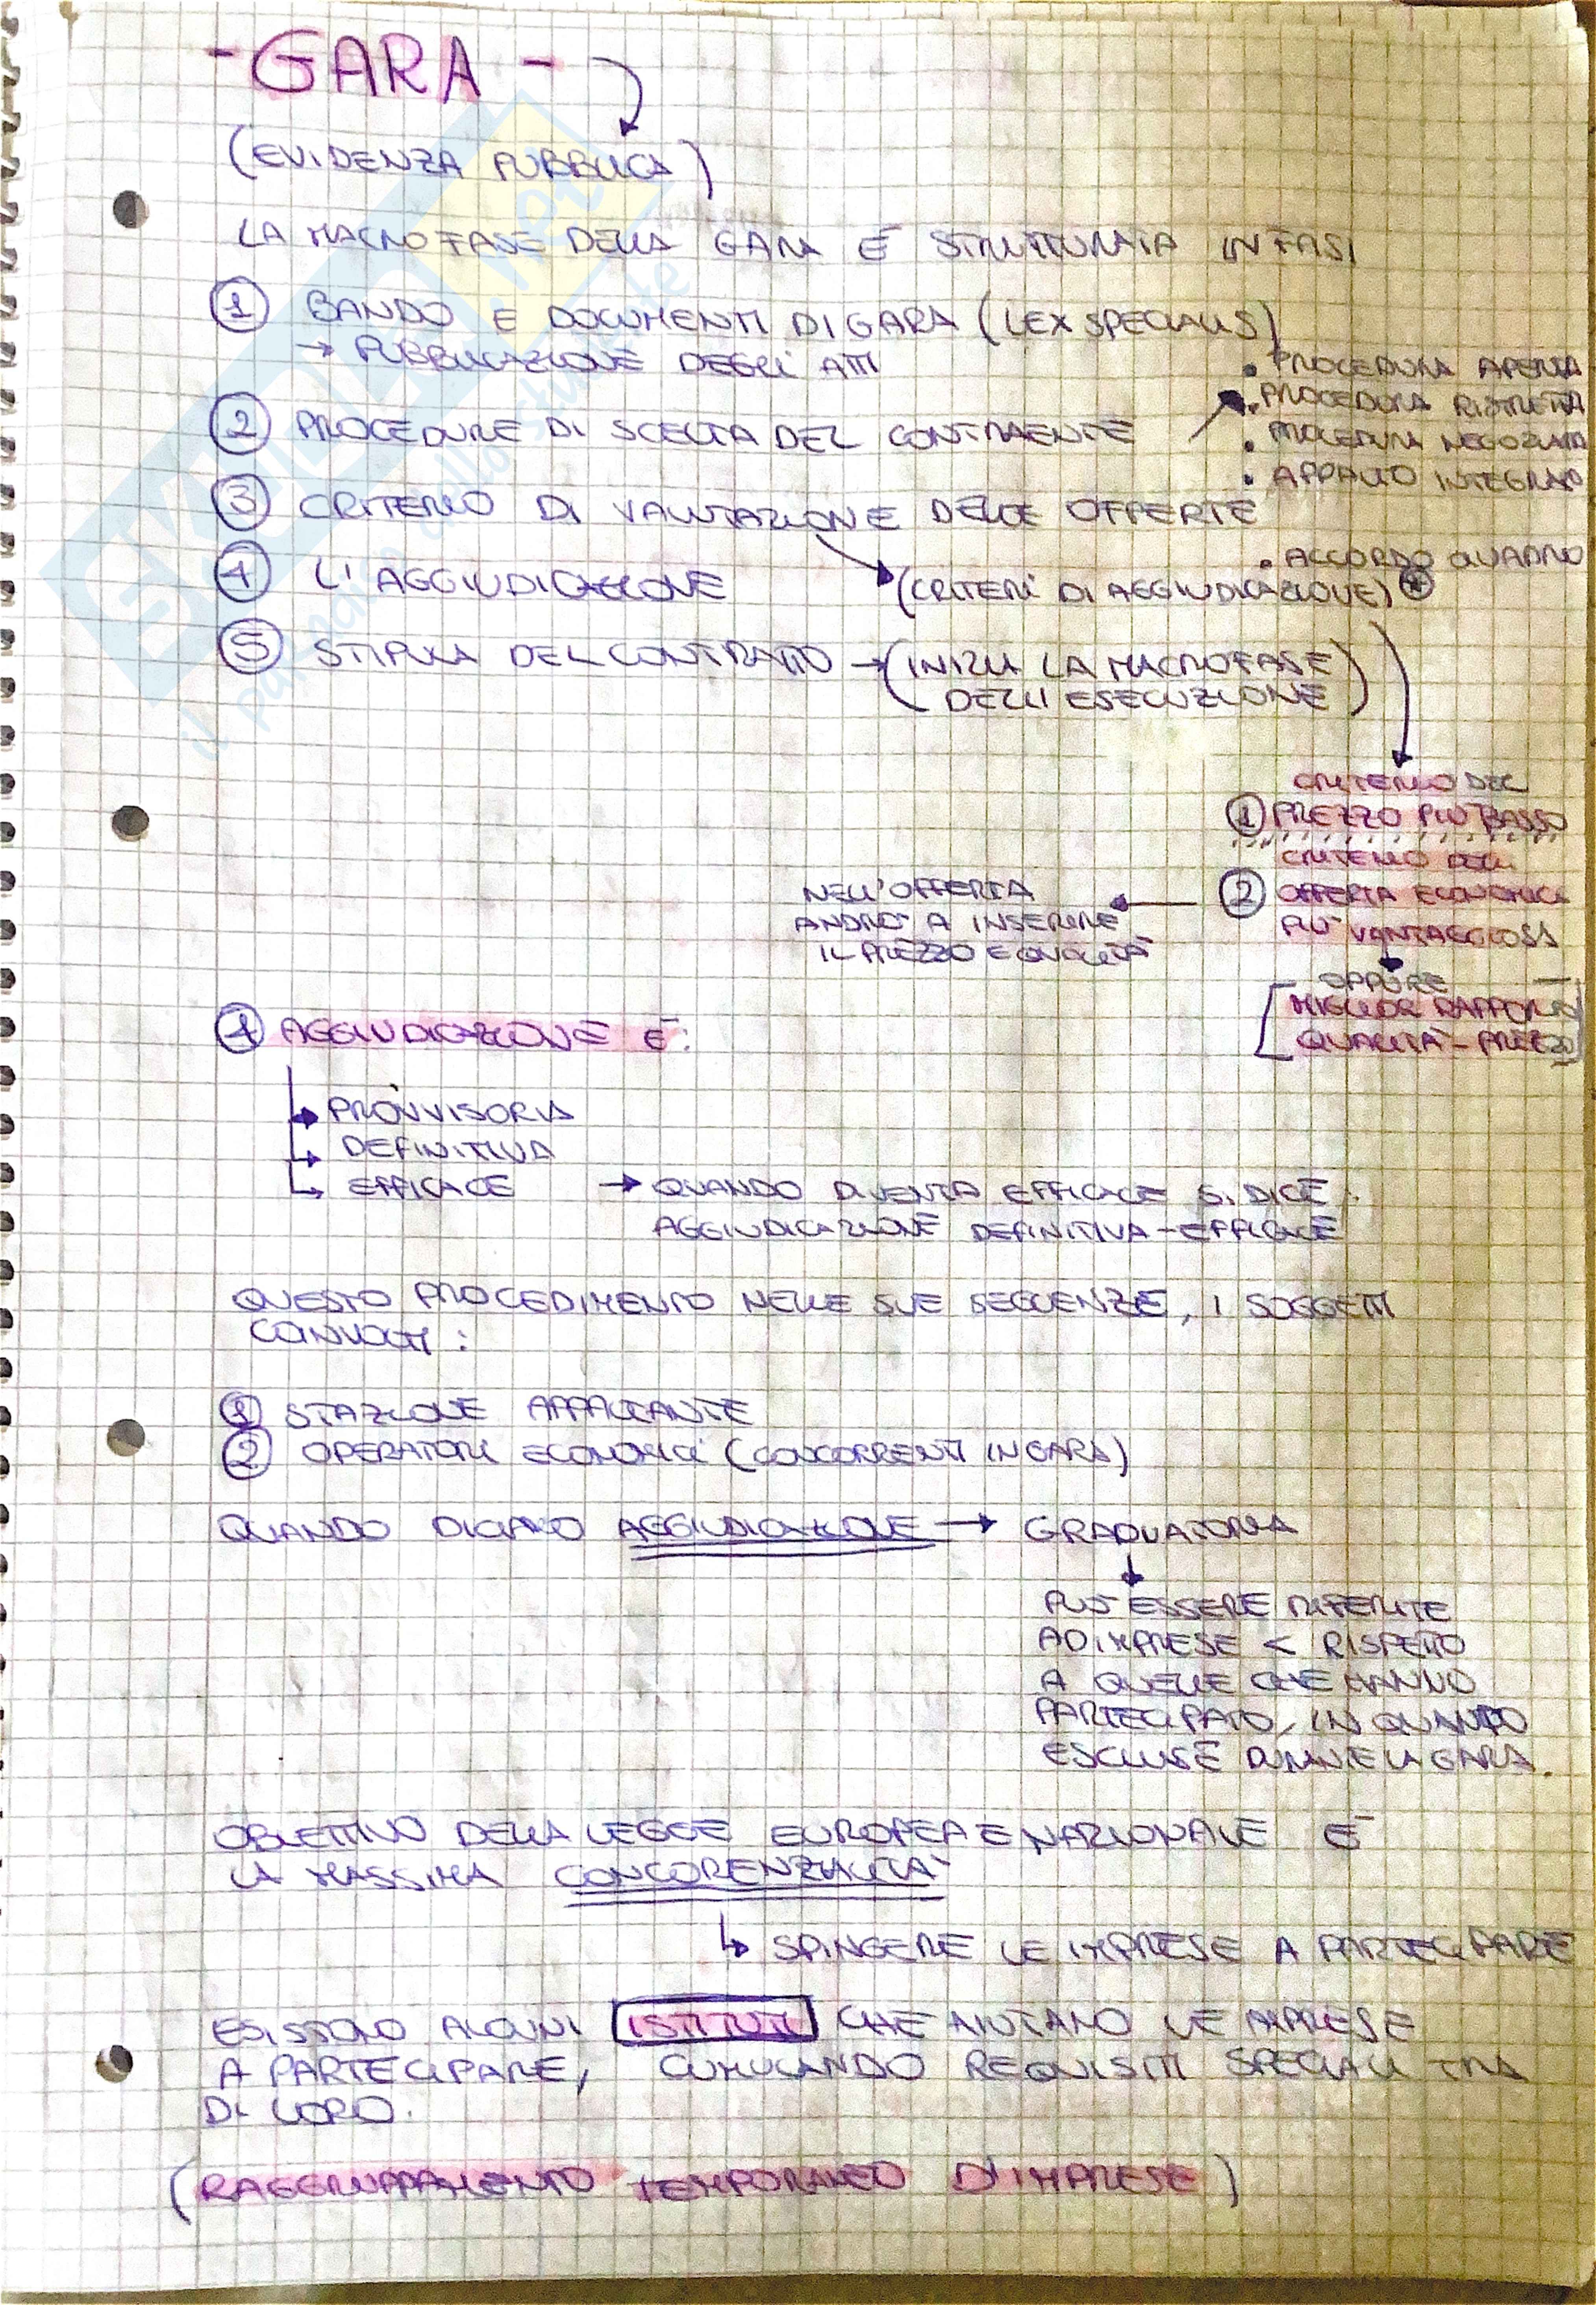 - GARA -
(EVIDENZA PUBBLICA)
LA MACROFASE DELLA GARA È STRUTTURATA IN FASI
① BANDO E DOCUMENTI DI GARA (LEX SPECIALIS)
→ PUBBLICAZIONE DEGLI ATTI
② PROCEDURE DI SCELTA DEL CONTRAENTE
• PROCEDURA APERTA
• PROCEDURA RISTRETTA
• PROCEDURA NEGOZIATA
• APPALTO INTEGRATO
• ACCORDO QUADRO
③ CRITERIO DI VALUTAZIONE DELLE OFFERTE
(CRITERI DI AGGIUDICAZIONE) *
④ L'AGGIUDICAZIONE
⑤ STIPULA DEL CONTRATTO → (INIZIA LA MACROFASE
DELL'ESECUZIONE)
CRITERIO DEL
① PREZZO PIÙ BASSO
CRITERIO DELL'
② OFFERTA ECONOMICA
PIÙ VANTAGGIOSA
OPPURE
[MIGLIOR RAPPORTO
QUALITÀ - PREZZO]
NELL'OFFERTA
ANDRÒ A INSERIRE
IL PREZZO E QUALITÀ
④ AGGIUDICAZIONE È:
→ PROVVISORIA
→ DEFINITIVA
→ EFFICACE → QUANDO DIVENTA EFFICACE SI DICE:
AGGIUDICAZIONE DEFINITIVA - EFFICACE
QUESTO PROCEDIMENTO NELLE SUE SEQUENZE, I SOGGETTI
COINVOLTI:
① STAZIONE APPALTANTE
② OPERATORI ECONOMICI (CONCORRENTI IN GARA)
QUANDO DICIAMO AGGIUDICAZIONE → GRADUATORIA
PUÒ ESSERE RIFERITE
AD IMPRESE < RISPETTO
A QUELLE CHE HANNO
PARTECIPATO, IN QUANTO
ESCLUSE DURANTE LA GARA.
OBIETTIVO DELLA LEGGE EUROPEA E NAZIONALE È
LA MASSIMA CONCORENZIALITÀ
↳ SPINGERE LE IMPRESE A PARTECIPARE
ESISTONO ALCUNI ISTITUTI CHE AIUTANO LE IMPRESE
A PARTECIPARE, CUMULANDO REQUISITI SPECIALI TRA
DI LORO.
(RAGGRUPPAMENTO TEMPORANEO D'IMPRESE)